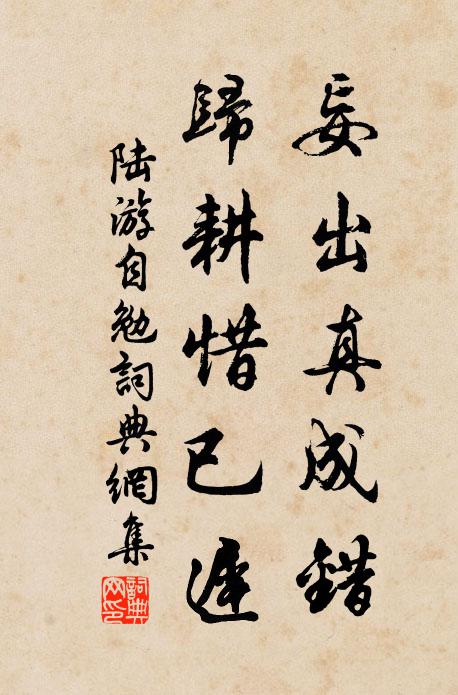 妄出真成錯
歸耕惜已遲
陸游自勉詞典網集
詞典網印